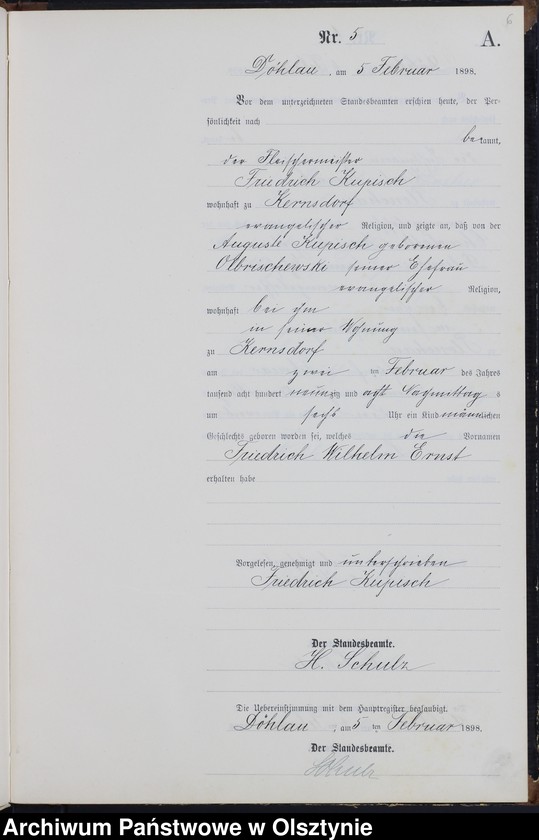 6
Nr. 5 A.
Döhlau, am 5 Februar 1898.
Vor dem unterzeichneten Standesbeamten erschien heute, der Per-
sönlichkeit nach
bekannt,
der Fleischermeister
Friedrich Kupisch
wohnhaft zu Kernsdorf
evangelischer Religion, und zeigte an, daß von der
Auguste Kupisch geborenen
Olbrischewski seiner Ehefrau
evangelischer Religion,
wohnhaft bei ihm
in seiner Wohnung
zu Kernsdorf
am zwei ten Februar des Jahres
tausend acht hundert neunzig und acht Nachmittag s
um sechs Uhr ein Kind männlichen
Geschlechts geboren worden sei, welches die Vornamen
Friedrich Wilhelm Ernst
erhalten habe
Vorgelesen, genehmigt und unterschrieben
Friedrich Kupisch
Der Standesbeamte.
H. Schulz
Die Uebereinstimmung mit dem Hauptregister beglaubigt.
Döhlau, am 5 ten Februar 1898.
Der Standesbeamte.
Schulz
Archiwum Państwowe w Olsztynie